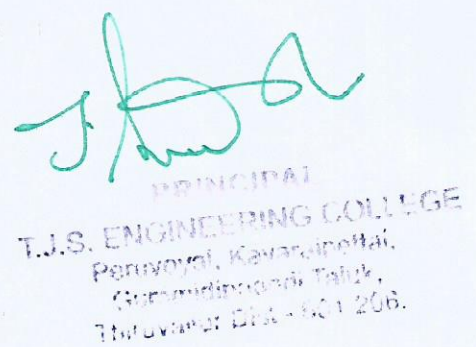 PRINCIPAL
T.J.S. ENGINEERING COLLEGE
Peruvoyal, Kavaraipettai,
Gummidipoondi Taluk,
Thiruvallur Dist - 601 206.